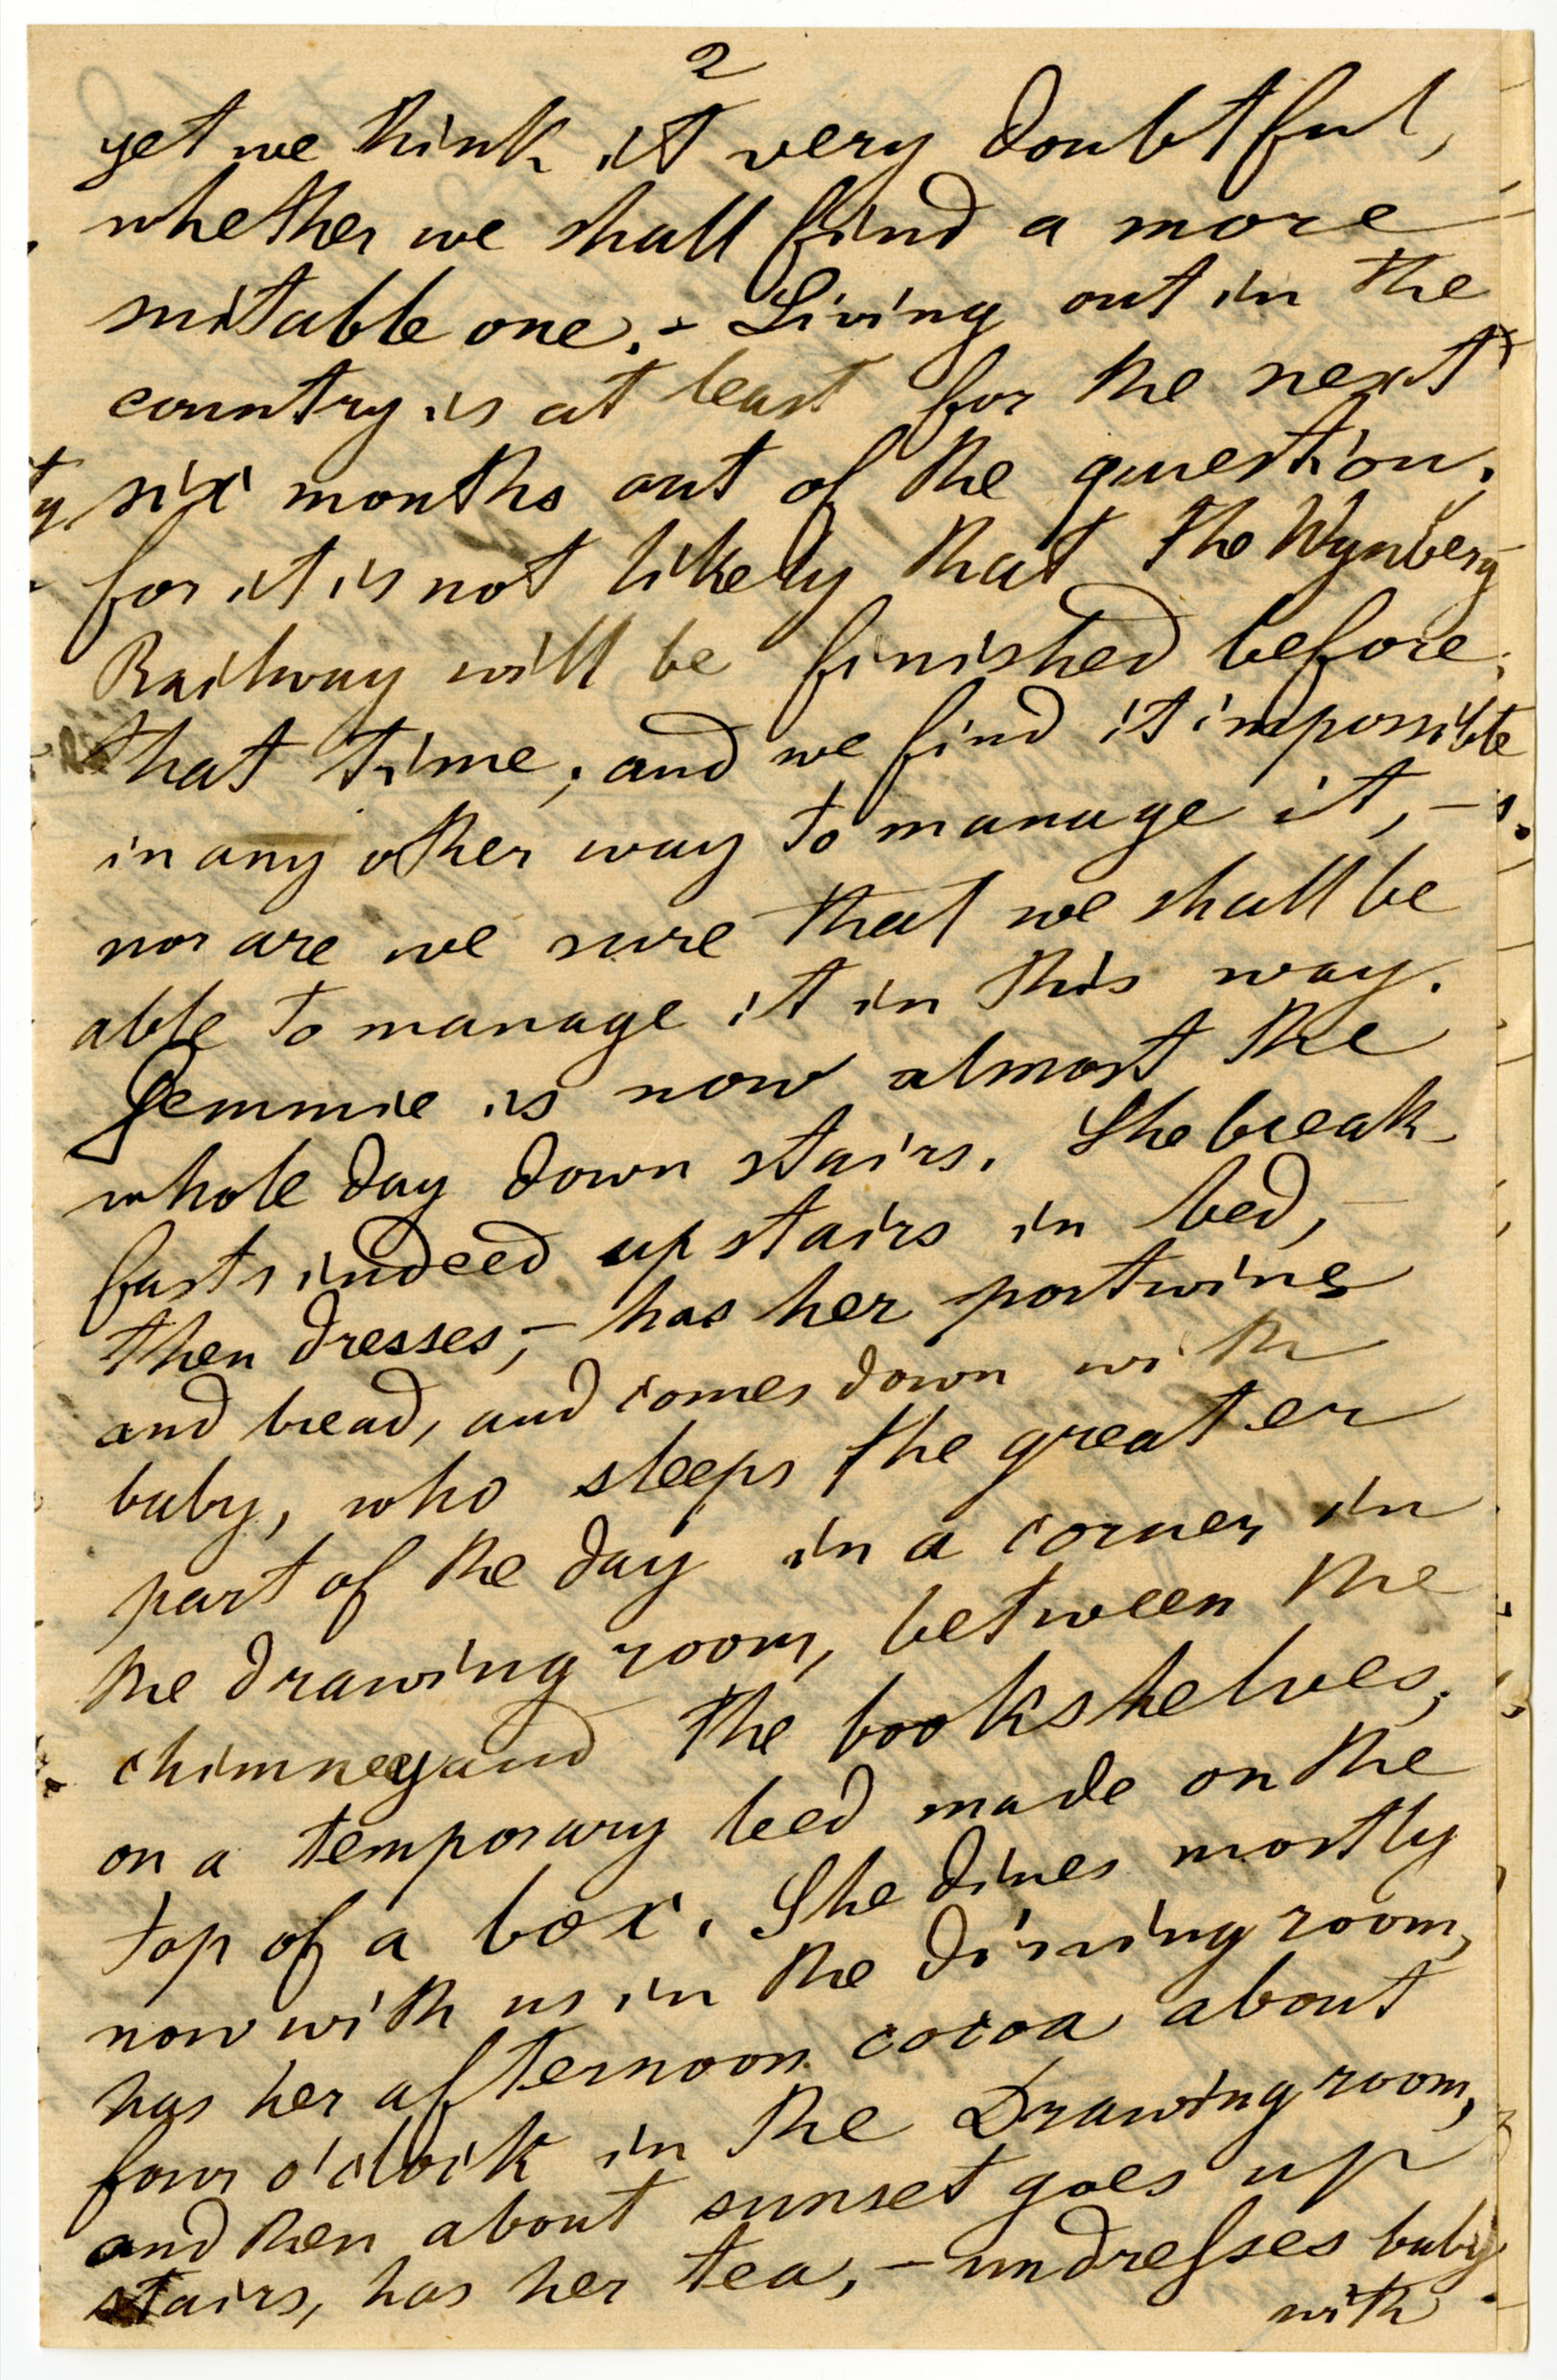 2
yet we think it very doubtful,
whether we shall find a more
suitable one. - Living out in the
country is at least for the next
six months out of the question,
for it is not likely that the Wynberg
Railway will be finished before
that time; and we find it impossible
in any other way to manage it, -
nor are we sure that we shall be
able to manage it in this way.
Jemmie is now almost the
whole day down stairs. She break-
fasts indeed up stairs in bed, -
then dresses, - has her portwine
and bread, and comes down with
baby, who sleeps the greater
part of the day in a corner in
the drawing room, between the
chimney and the bookshelves,
on a temporary bed made on the
top of a box. She dines mostly
now with us in the dining room,
has her afternoon cocoa about
four o'clock in the Drawing room,
and then about sunset goes up
stairs, has her tea, - undresses baby
with